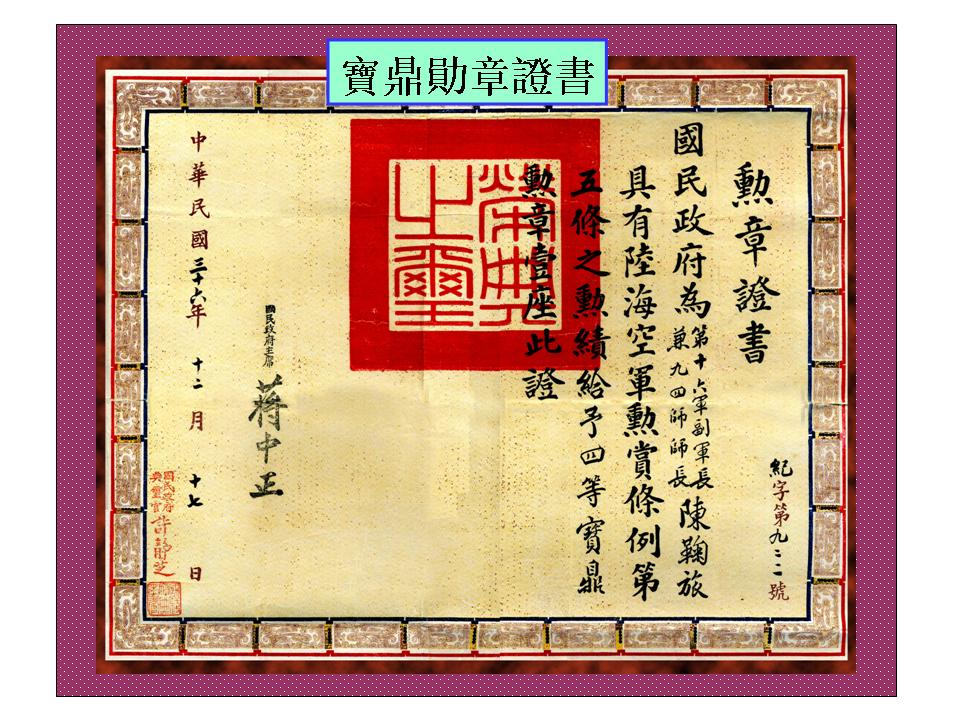 寶鼎勛章證書
勳章證書
紀字第九二二號
國民政府為第十六軍副軍長
兼九四師師長陳鞠旅
具有陸海空軍勳賞條例第
五條之勳績給予四等寶鼎
勳章壹座此證
榮典
之璽
國民政府主席
蔣中正
中華民國三十六年十二月十七日
國民政府
典璽官許靜芝